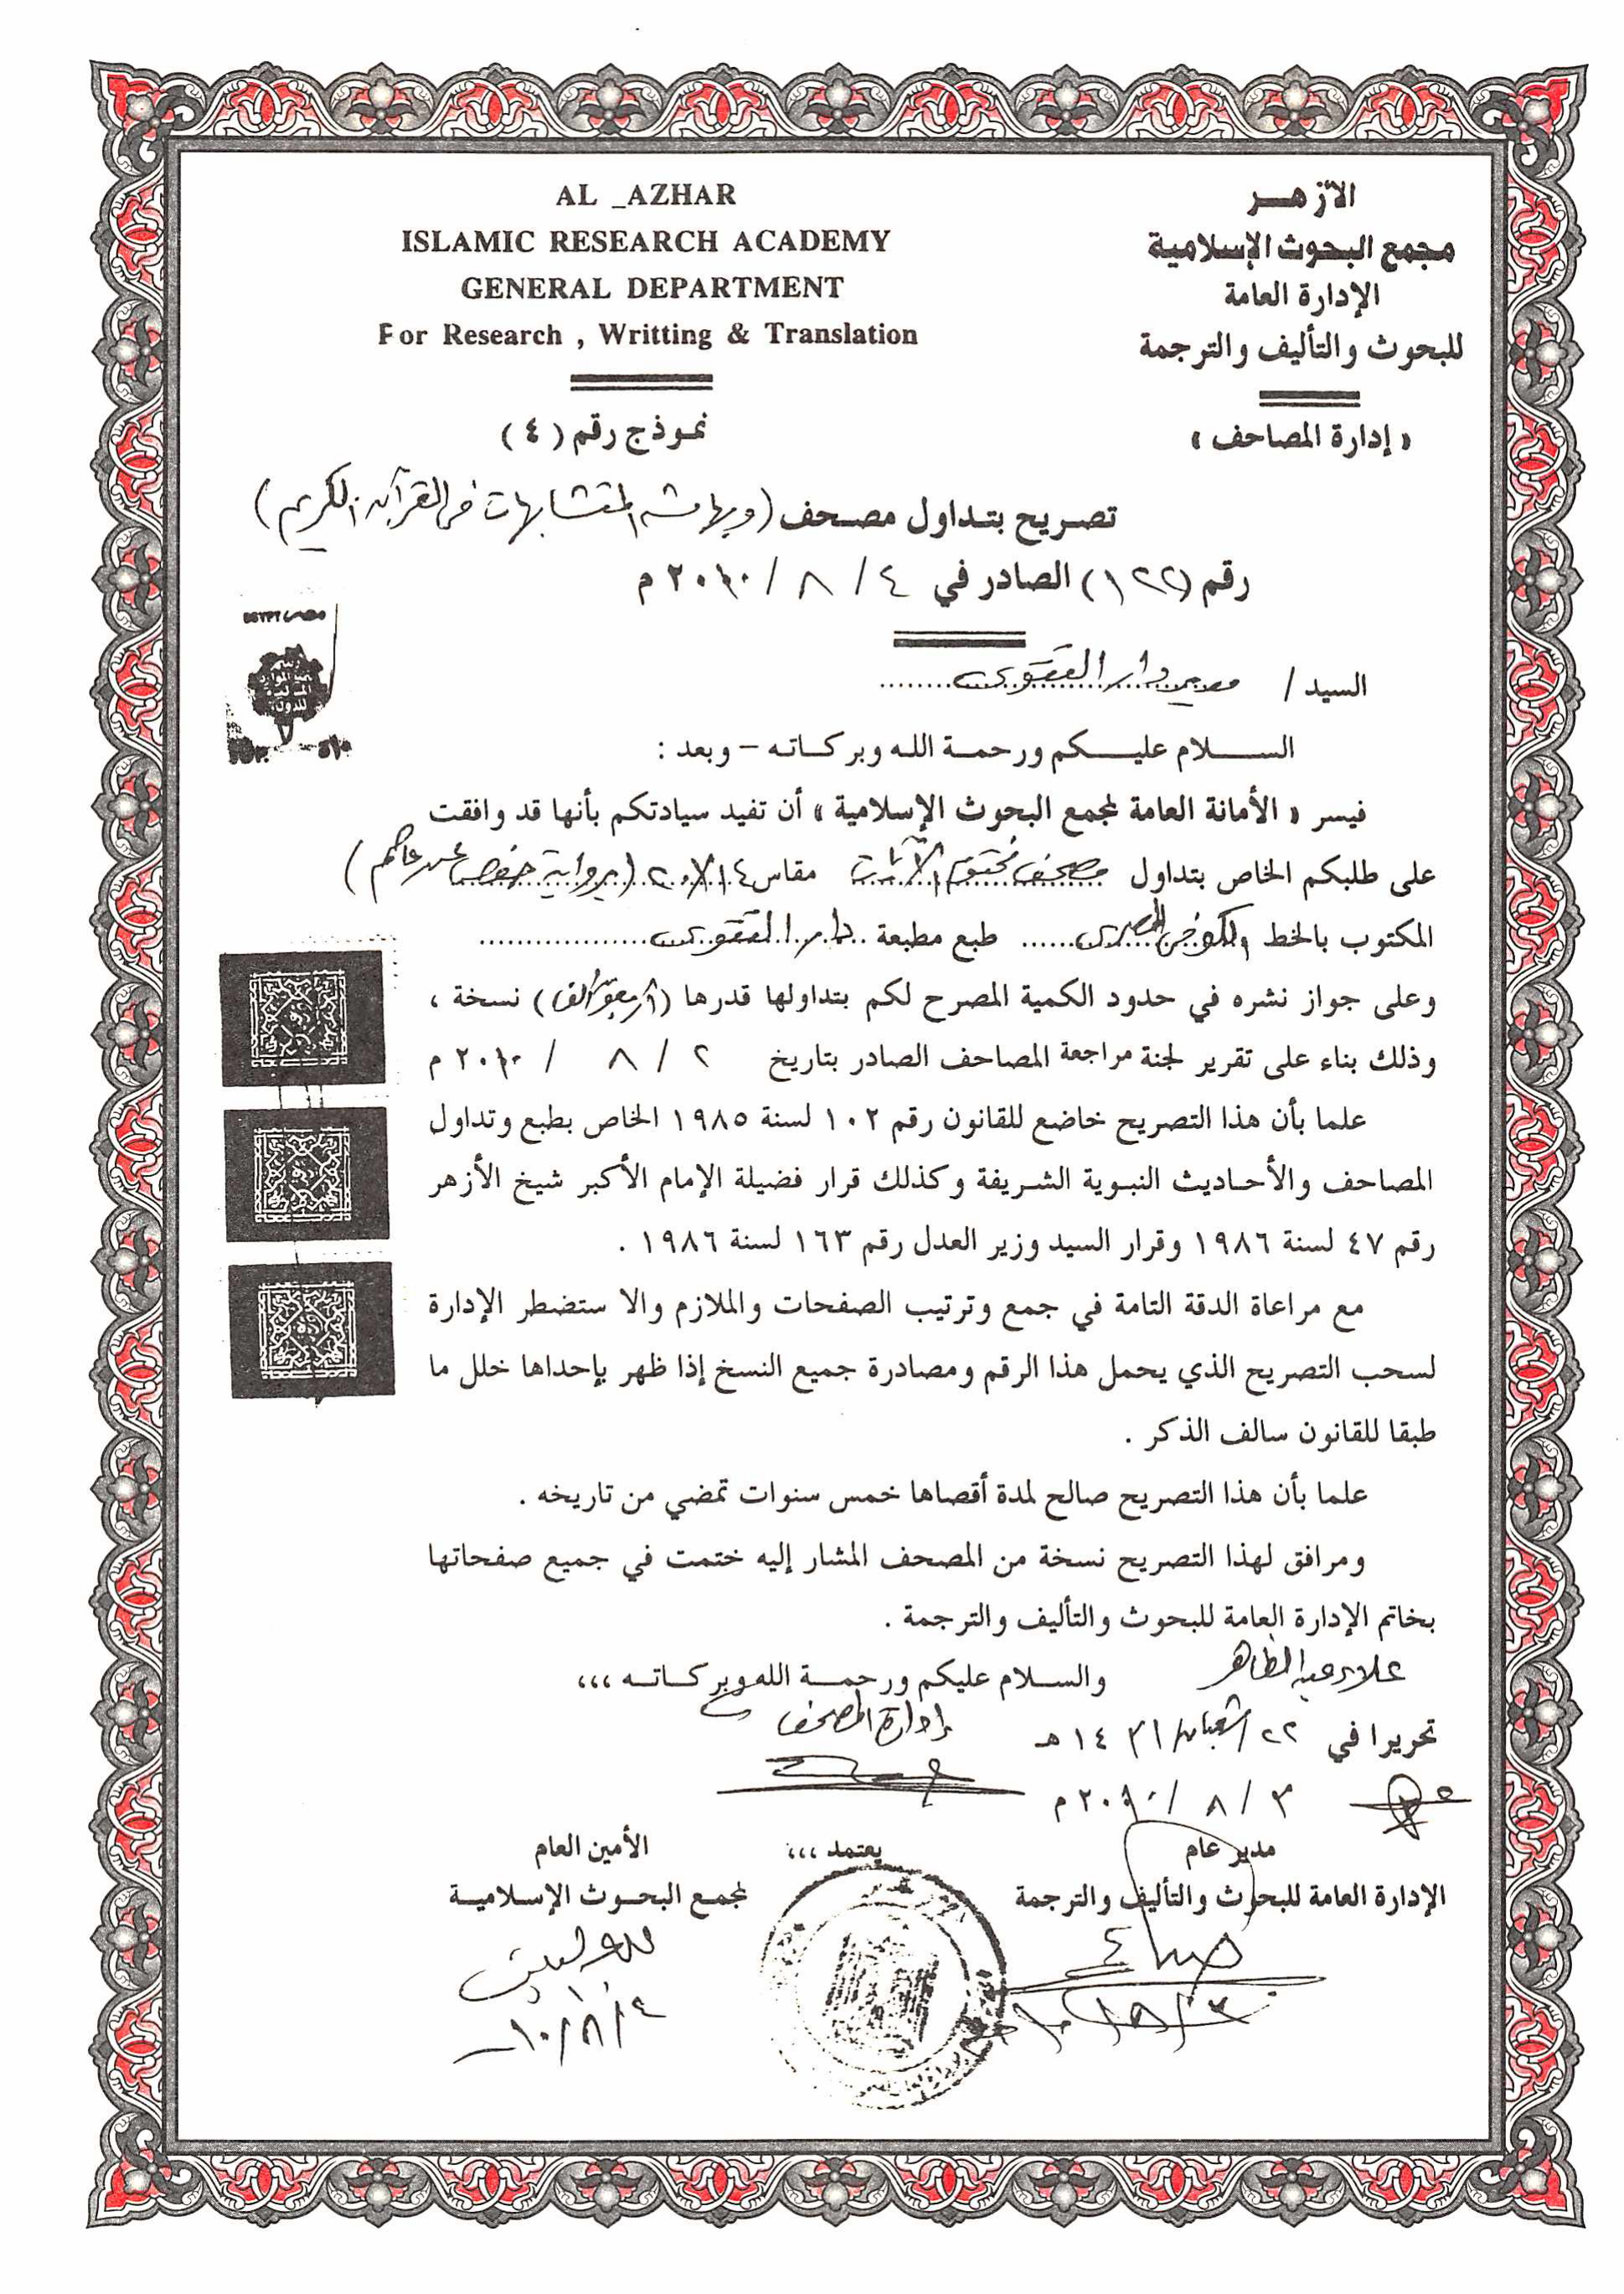 الأزهـــر
مجمع البحوث الإسلامية
الإدارة العامة
للبحوث والتأليف والترجمة
« إدارة المصاحف »
AL _AZHAR
ISLAMIC RESEARCH ACADEMY
GENERAL DEPARTMENT
For Research , Writting & Translation
نموذج رقم ( ٤ )
تصريح بتداول مصحف (وبهامشه المتشابهات في القرآن الكريم)
رقم (١٢٢) الصادر في ٤ / ٨ / ٢٠١٠ م
السيد / دار التقوى
السلام عليكم ورحمة الله وبركاته – وبعد :
فيسر « الأمانة العامة لمجمع البحوث الإسلامية » أن تفيد سيادتكم بأنها قد وافقت
على طلبكم الخاص بتداول مصحف مقاس ١٤ × ٢٠ (برواية حفص عن عاصم)
المكتوب بالخط طبع مطبعة دار التقوى
وعلى جواز نشره في حدود الكمية المصرح لكم بتداولها قدرها ( ) نسخة ،
وذلك بناء على تقرير لجنة مراجعة المصاحف الصادر بتاريخ ٢ / ٨ / ٢٠١٠ م
علما بأن هذا التصريح خاضع للقانون رقم ١٠٢ لسنة ١٩٨٥ الخاص بطبع وتداول
المصاحف والأحاديث النبوية الشريفة وكذلك قرار فضيلة الإمام الأكبر شيخ الأزهر
رقم ٤٧ لسنة ١٩٨٦ وقرار السيد وزير العدل رقم ١٦٣ لسنة ١٩٨٦ .
مع مراعاة الدقة التامة في جمع وترتيب الصفحات والملازم والا ستضطر الإدارة
لسحب التصريح الذي يحمل هذا الرقم ومصادرة جميع النسخ إذا ظهر بإحداها خلل ما
طبقا للقانون سالف الذكر .
علما بأن هذا التصريح صالح لمدة أقصاها خمس سنوات تمضي من تاريخه .
ومرافق لهذا التصريح نسخة من المصحف المشار إليه ختمت في جميع صفحاتها
بخاتم الإدارة العامة للبحوث والتأليف والترجمة .
والسلام عليكم ورحمة الله وبركاته ،،،
علاء عبد الظاهر
إدارة المصاحف
تحريرا في ٢٢ / شعبان / ١٤٣١ هـ
٣ / ٨ / ٢٠١٠ م
مدير عام
الإدارة العامة للبحوث والتأليف والترجمة
يعتمد ،،،
الأمين العام
لمجمع البحوث الإسلامية